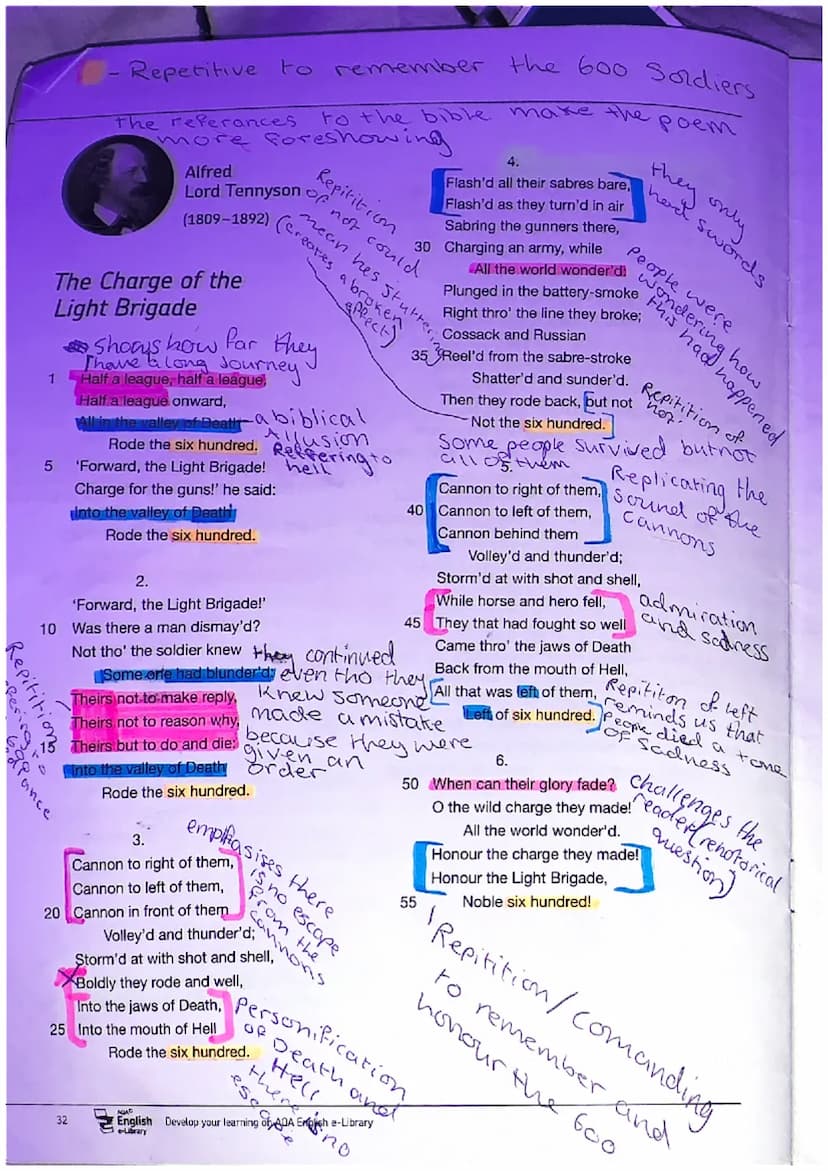 - Repetitive to remember the 600 Soldiers
The referances to the bible make the poem
more foreshowing
Alfred
Lord Tennyson
(1809–1892)
Repitition
of not could
mean hes stuttering
(creates a broken
effect)
The Charge of the
Light Brigade
Shows how far they
have along Journey
1 Half a league, half a league,
Half a league onward,
All in the valley of Death
Rode the six hundred.
a biblical
Allusion
Reffering to
hell
5 'Forward, the Light Brigade!
Charge for the guns!' he said:
Into the valley of Death
Rode the six hundred.
2.
'Forward, the Light Brigade!'
10 Was there a man dismay'd?
Not tho' the soldier knew
Some one had blunder'd:
Theirs not to make reply,
Theirs not to reason why,
15 Theirs but to do and die:
Into the valley of Death
Rode the six hundred.
they continued
even tho they
knew someone
made a mistake
because they were
given an
order
Repitition
3.
Cannon to right of them,
Cannon to left of them,
20 Cannon in front of them
Volley'd and thunder'd;
Storm'd at with shot and shell,
Boldly they rode and well,
Into the jaws of Death,
25 Into the mouth of Hell
Rode the six hundred.
emphasises there
is no escape
from the
cannons
Personification
of Death and
Hell
there is no
escape
4.
Flash'd all their sabres bare,
Flash'd as they turn'd in air
Sabring the gunners there,
30 Charging an army, while
All the world wonder'd:
Plunged in the battery-smoke
Right thro' the line they broke;
Cossack and Russian
35 Reel'd from the sabre-stroke
Shatter'd and sunder'd.
Then they rode back, but not
Not the six hundred.
they only
had swords
People were
wondering how
this had happened
Repitition of
not.
Some people survived but not
all of them
5.
Cannon to right of them,
40 Cannon to left of them,
Cannon behind them
Volley'd and thunder'd;
Storm'd at with shot and shell,
While horse and hero fell,
45 They that had fought so well
Came thro' the jaws of Death
Back from the mouth of Hell,
All that was left of them,
Left of six hundred.
Replicating the
sound of the
cannons
admiration
and sadness
Repititon of left
reminds us that
people died a tone
of sadness
6.
50 When can their glory fade?
O the wild charge they made!
All the world wonder'd.
Honour the charge they made!
Honour the Light Brigade,
55 Noble six hundred!
challenges the
reader (rehotorical
question)
Repitition/comanding
to remember and
honour the 600
32
AQA
English
e-Library
Develop your learning of AQA English e-Library